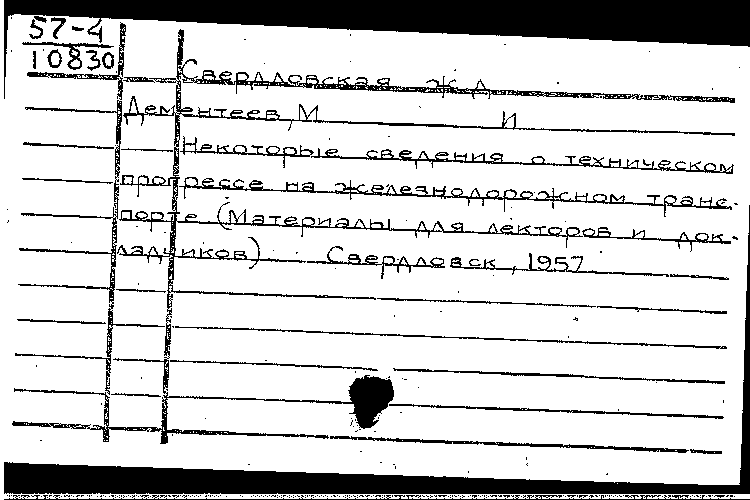 57-4
10830
Свердловская ж.д.
Дементеев, М И
Некоторые сведения о техническом
прогрессе на железнодорожном транс-
порте (Материалы для лекторов и док-
ладчиков) Свердловск, 1957